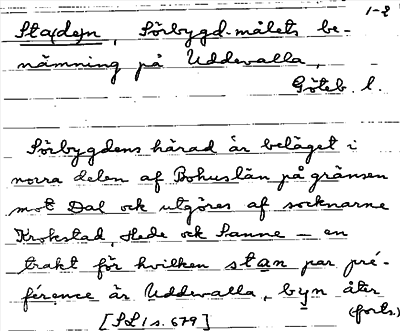 1-2
Sta(de)n, Sörbygd-målets be-
nämning på Uddevalla,
Göteb. l.
Sörbygdens härad är beläget i
norra delen af Bohuslän på gränsen
mot Dal och utgöres af socknarne
Krokstad, Hede och Sanne – en
trakt för hvilken stan par pré-
férence är Uddevalla, byn åter
(forts.)
[SL 1 s. 679]